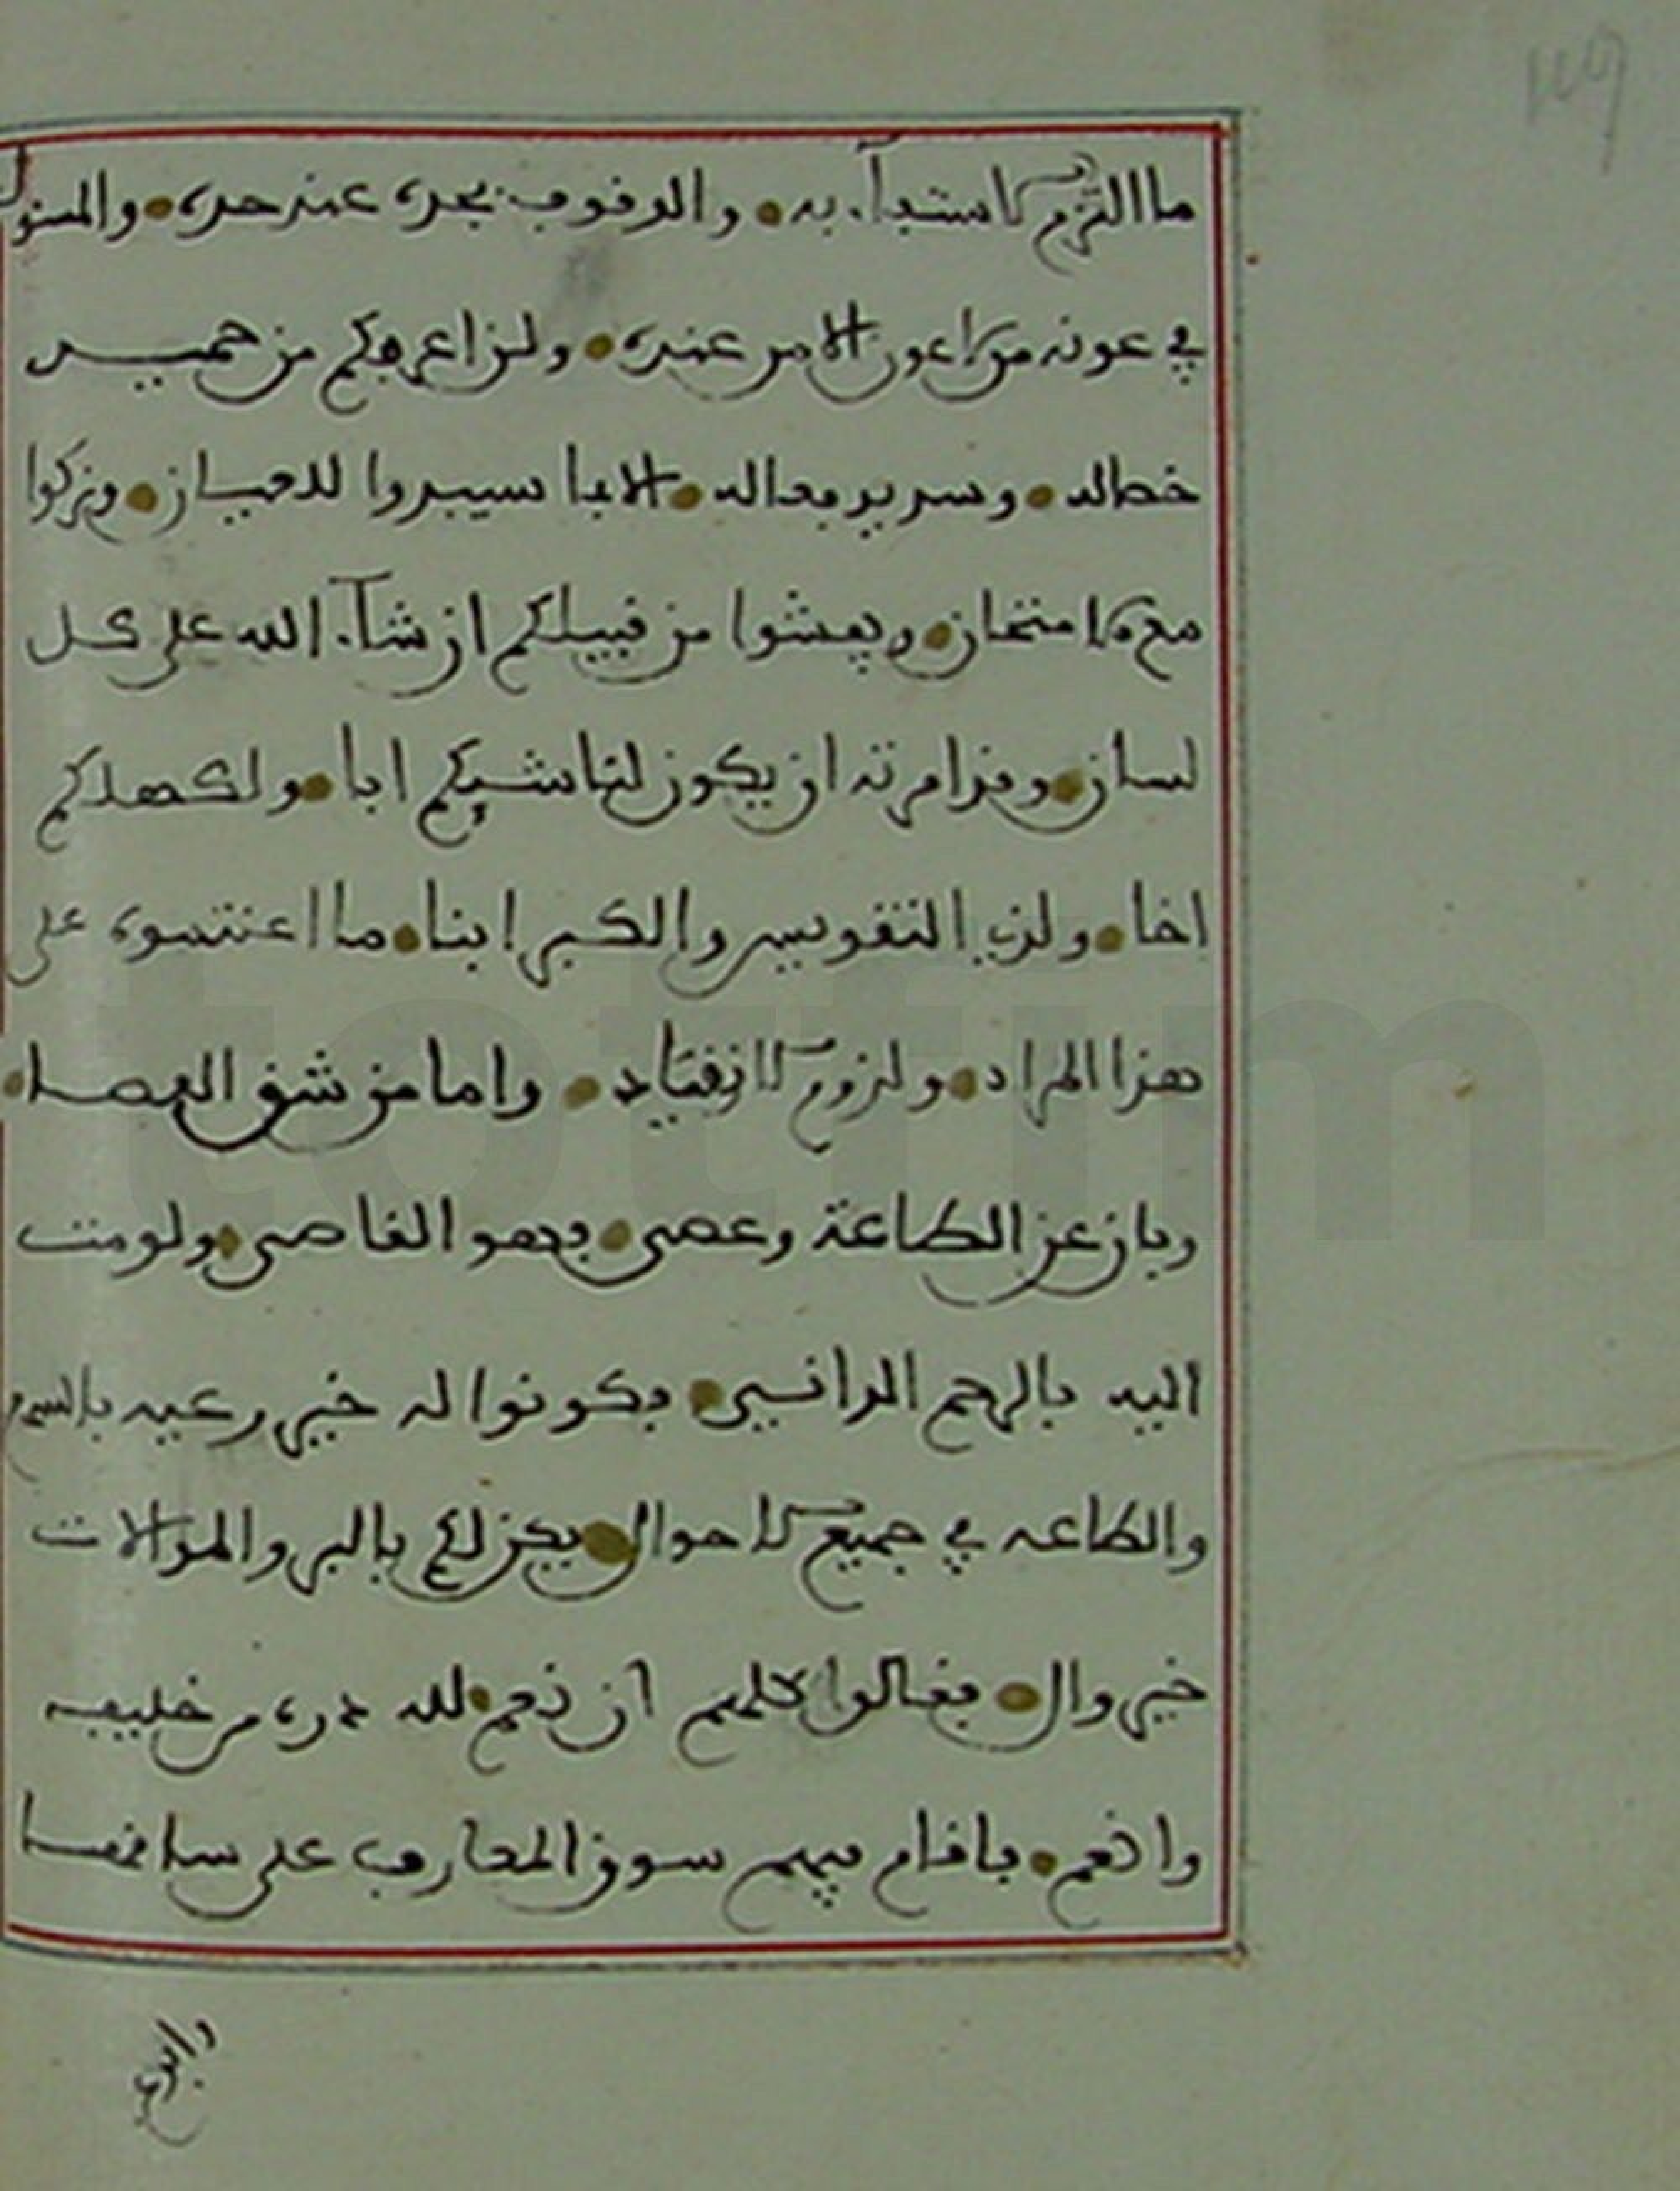 ما التزم الاستبداء به • والوقوف بجده عند حده • والمسئول
في عونه من اعون الامر عنده • ولن اعرفكم من حميد
خصاله • وسديد فعاله • الا بما سيبدوا للعيان • ويزكوا
مع الامتحان • ويفشوا من قبلكم ان شاء الله على كل
لسان • وقد امرته ان يكون لناشيكم ابا • ولكهلكم
اخا • ولذي التقويس والكبر ابنا • ما اعنتموه على
هذا المراد • ولزوم الانقياد • واما من شق العصا •
وبان عن الطاعة وعصى • فهو القاصي • ولو مت
اليه بالرحم الداني • فكونوا له خير رعيه بالسمع
والطاعه في جميع الاحوال • يكن لكم بالبر والموالات
خير وال • فقالوا كلهم ان نعم • لله دره من خليفه
وانعم • فاقام فيهم سوق المعارف على ساقها
149